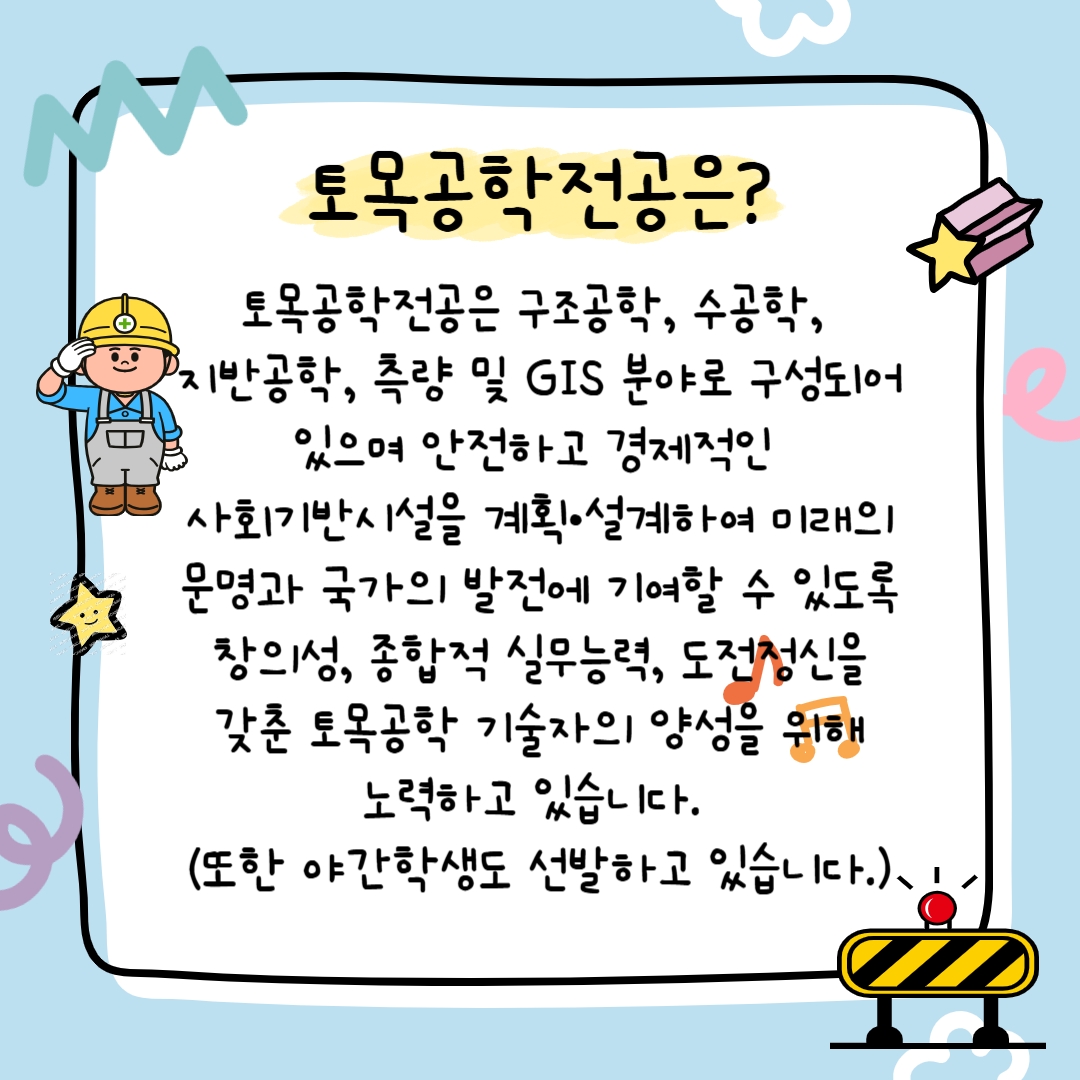 토목공학전공은?
토목공학전공은 구조공학, 수공학,
지반공학, 측량 및 GIS 분야로 구성되어
있으며 안전하고 경제적인
사회기반시설을 계획•설계하여 미래의
문명과 국가의 발전에 기여할 수 있도록
창의성, 종합적 실무능력, 도전정신을
갖춘 토목공학 기술자의 양성을 위해
노력하고 있습니다.
(또한 야간학생도 선발하고 있습니다.)